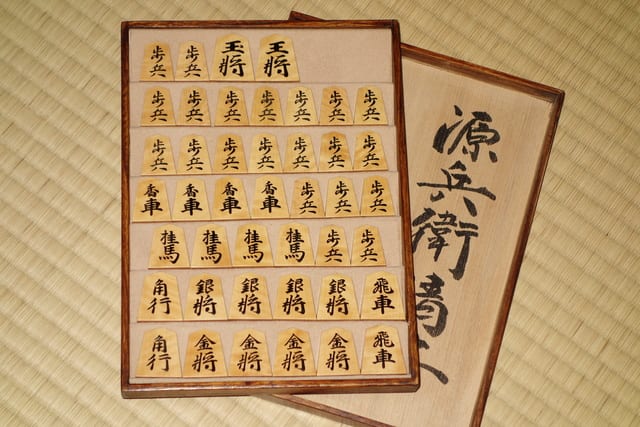 歩兵 歩兵 玉将 王将
歩兵 歩兵 歩兵 歩兵 歩兵 歩兵 歩兵
歩兵 歩兵 歩兵 歩兵 歩兵 歩兵 歩兵
香車 香車 香車 香車 歩兵 歩兵 歩兵
桂馬 桂馬 桂馬 桂馬 歩兵 歩兵
角行 銀将 銀将 銀将 銀将 飛車
角行 金将 金将 金将 金将 飛車
源兵衛